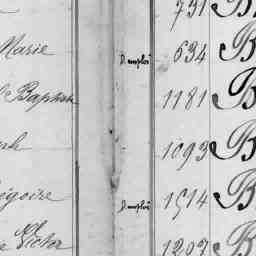 731 B
Marie D. emploi 634 B
Baptiste 1181 B
ph 1093 B
égoire D. emploi 1514 B
Victor 1207 B